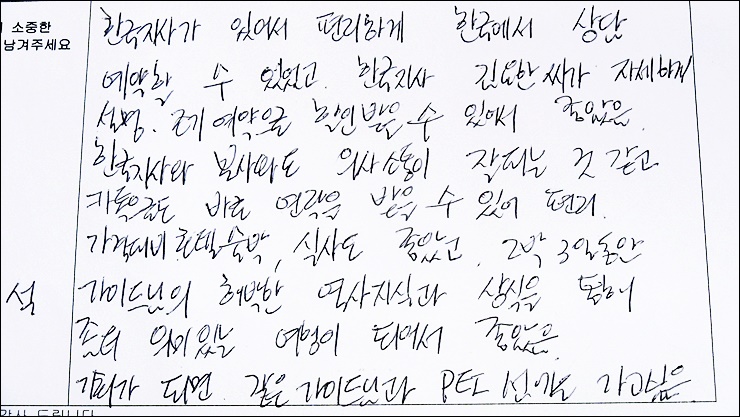 소중한
남겨주세요
한국지사가 있어서 편리하게 한국에서 상담
예약할 수 있었고. 한국지사 김요한씨가 자세하게
설명. 조기예약으로 할인받을 수 있어서 좋았음.
한국지사와 본사와도 의사소통이 잘되는 것 같고
카톡으로도 바로 연락을 받을 수 있어 편리.
가격대비 호텔숙박, 식사도 좋았고. 2박 3일동안
석 가이드님의 해박한 역사지식과 상식을 통해
좀더 의미있는 여행이 되어서 좋았음.
기회가 되면 같은 가이드님과 가고싶음
감사 드립니다